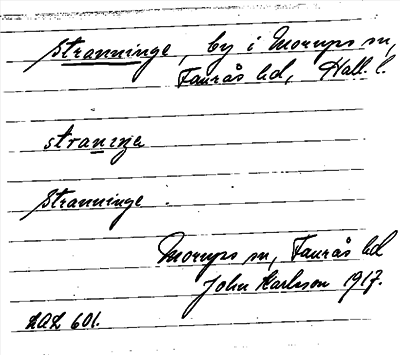 Stranninge, by i Morups sn,
Faurås hd, Hall. l.
straninge
Stranninge.
Morups sn, Faurås hd
John Karlsson 1917.
LAL 601.